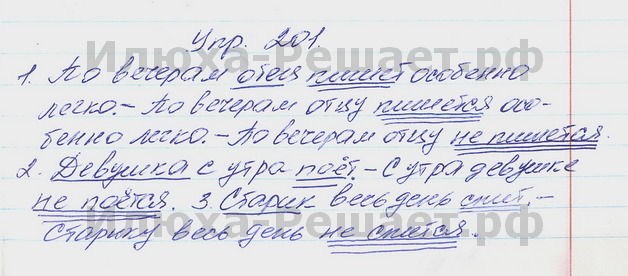 Упр. 201.
Илюха-Решает.рф
1. По вечерам отец пишет особенно
легко. – По вечерам отцу пишется осо-
бенно легко. – По вечерам отцу не пишется.
2. Девушка с утра поёт. – С утра девушке
не поётся. 3. Старик весь день спит. –
Илюха-Решает.рф
Старику весь день не спится.